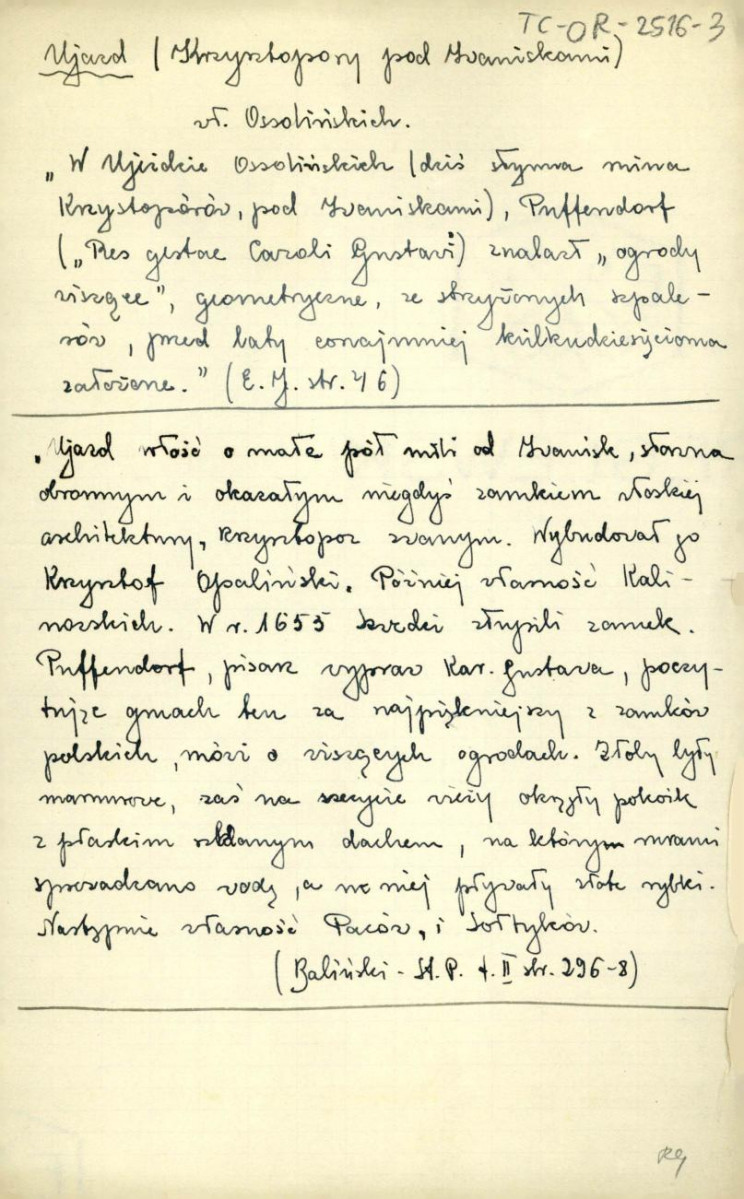 TC-OR-2516-3
Ujazd (Krzysztopory pod Iwaniskami)
wł. Ossolińskich.
„W Ujeździe Ossolińskich (dziś słynna ruina
Krzystoporów, pod Iwaniskami), Puffendorf
(„Res gestae Caroli Gustavi") znalazł „ogrody
wiszące", geometryczne, ze strzyżonych szpale-
rów, przed laty conajmniej kilkudziesięcioma
założone." (E. J. str. 46)
„Ujazd włość o małe pół mili od Iwanisk, sławna
obronnym i okazałym niegdyś zamkiem włoskiej
architektury, Krzysztopor zwanym. Wybudował go
Krzysztof Opaliński. Później własność Kali-
nowskich. W r. 1655 Szwedzi złupili zamek.
Puffendorf, pisarz wypraw Kar. Gustava, poczy-
tując gmach ten za najpiękniejszy z zamków
polskich, mówi o wiszących ogrodach. Żłoby były
marmurowe, zaś na szczycie wieży okrągły pokoik
z płaskim szklanym dachem, na którym rurami
sprowadzano wodę, a w niej pływały złote rybki.
Następnie własność Paców, i Sołtyków.
(Baliński - St. P. t. II str. 296-8)